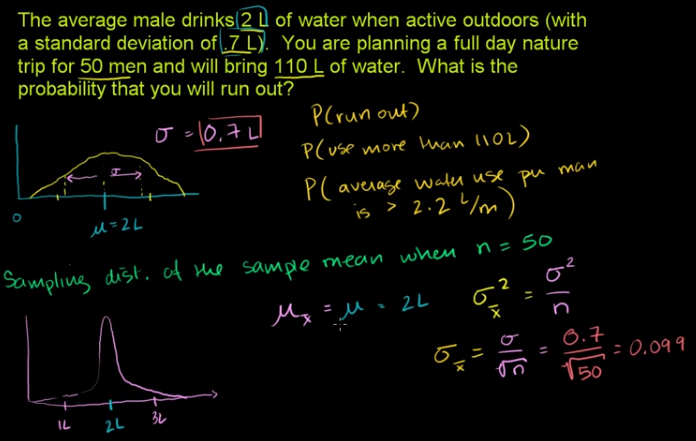 The average male drinks 2 L of water when active outdoors (with
a standard deviation of .7 L). You are planning a full day nature
trip for 50 men and will bring 110 L of water. What is the
probability that you will run out?
σ = 0.7L
P(run out)
P(use more than 110L)
P(average water use per man
is > 2.2 L/m)
σ
0
μ = 2L
Sampling dist. of the sample mean when n = 50
μ_x̄ = μ = 2L
σ_x̄² = σ²/n
σ_x̄ = σ/√n = 0.7/√50 = 0.099
1L 2L 3L